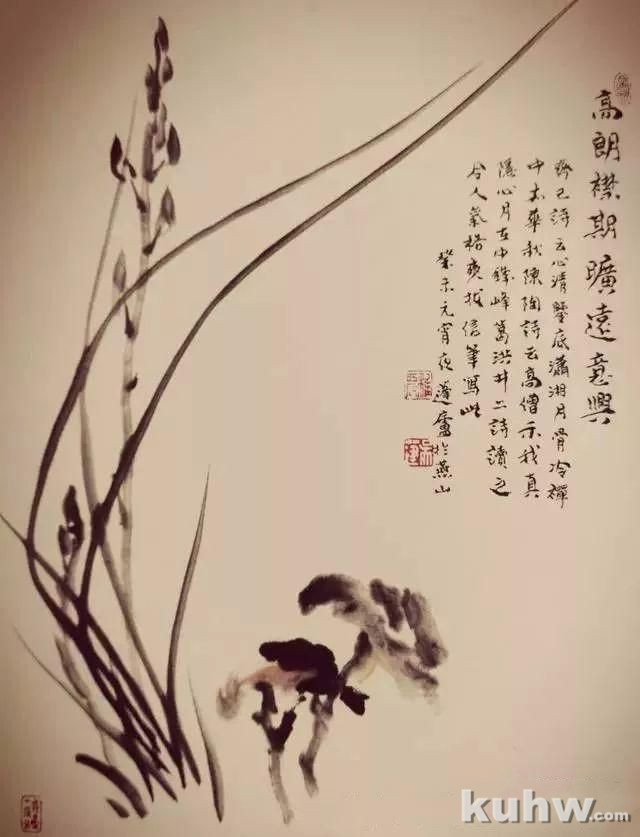 高朗襟期曠遠意興
齊己詩云心清鑒底瀟湘月骨冷禪
中太華秋陳陶詩云高僧示我真
隱心月在中鋒峰葛洪井二詩讀之
令人氣格爽拔信筆寫此
癸未元宵夜廬於燕山
kuhw.com